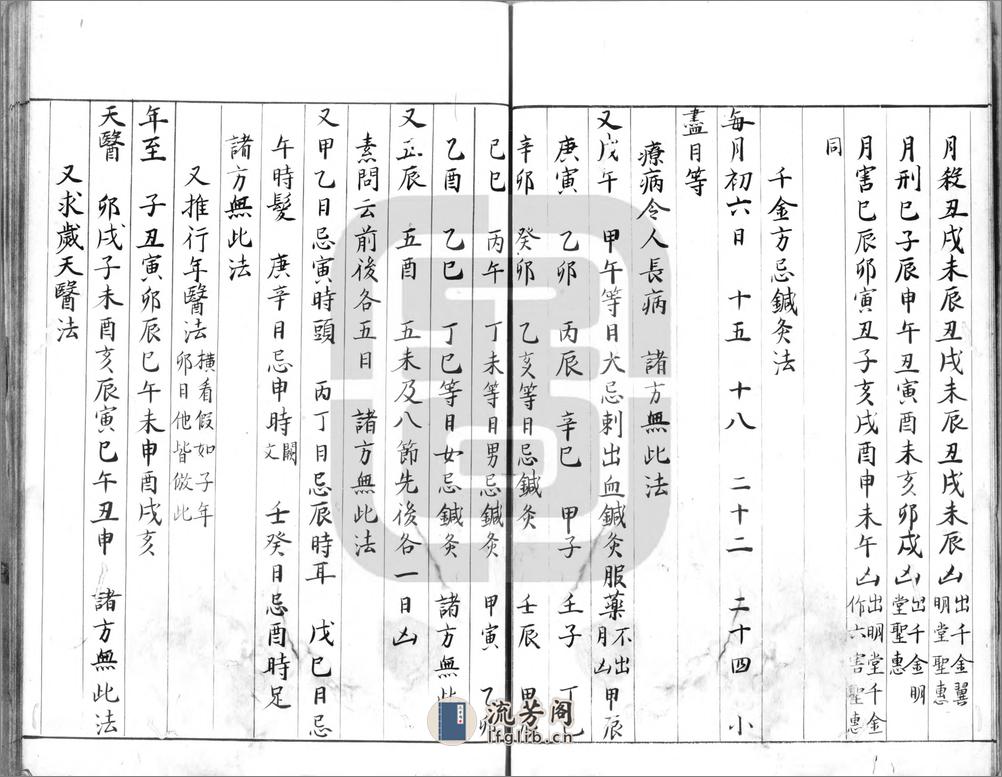 月殺丑戌未辰丑戌未辰丑戌未辰凶出千金翼明堂聖惠
月刑巳子辰申午丑寅酉未亥卯戌凶出千金明堂聖惠
月害巳辰卯寅丑子亥戌酉申未午凶出明堂千金作六害聖惠
同
千金方忌鍼灸法
每月初六日 十五 十八 二十二 二十四 小
盡日等
療病令人長病 諸方無此法
又戊午 甲午等日大忌刺出血鍼灸服藥不出月凶 甲辰
庚寅 乙卯 丙辰 辛巳 甲子 壬子 丁
辛卯 癸卯 乙亥等日忌鍼灸 壬辰 甲
巳巳 丙午 丁未等日男忌鍼灸 甲寅 乙
乙酉 乙巳 丁巳等日女忌鍼灸 諸方無此
又五辰 五酉 五未及八節先後各一日凶
素問云前後各五日 諸方無此法
又甲乙日忌寅時頭 丙丁日忌辰時耳 戊巳日忌
午時髮 庚辛日忌申時闕文 壬癸日忌酉時足
諸方無此法
又推行年醫法橫看假如子年卯日他皆倣此
年至 子丑寅卯辰巳午未申酉戌亥
天醫 卯戌子未酉亥辰寅巳午丑申 諸方無此法
又求歲天醫法
流芳阁
lfglib.cn